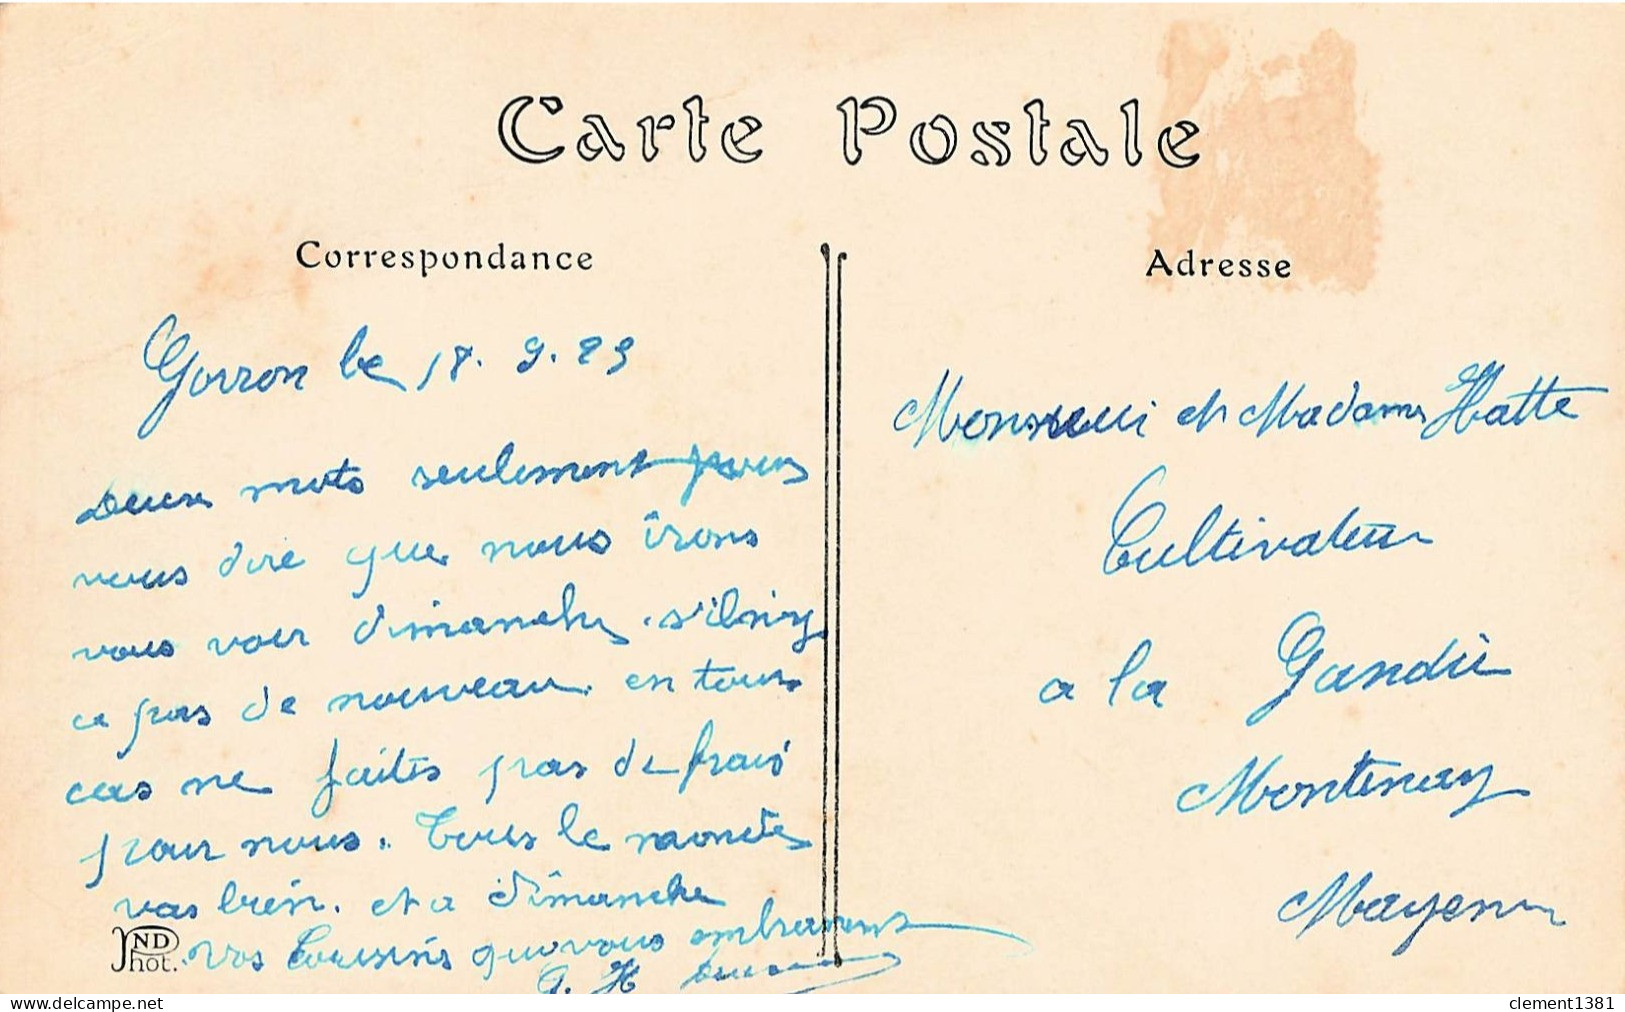 Carte Postale
Correspondance
Adresse
Gorron le 18. 9. 29
Deux mots seulement pour
vous dire que nous irons
vous voir dimanche. s'il n'y
a pas de nouveau. en tous
cas ne faites pas de frais
pour nous. Tous le monde
vas bien. et a dimanche
vos Cousins qui vous embrassent
G. H
ND
Phot.
Monsieur et Madame Hatte
Cultivateur
a la Gandie
Montenay
Mayenne
clement1381